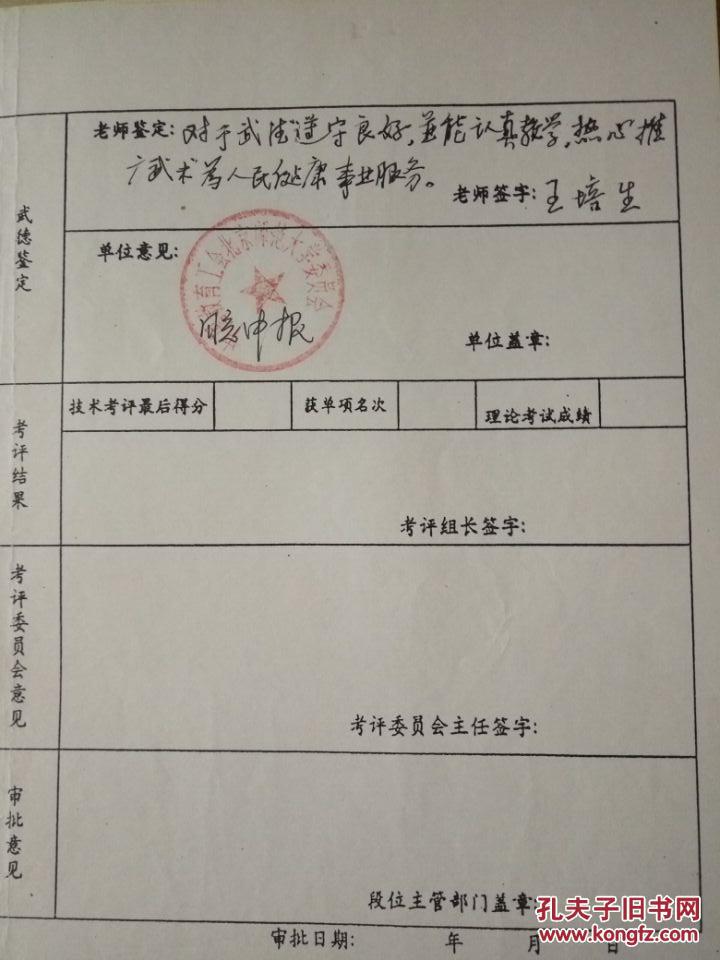 老师鉴定:对于武德遵守良好,並能认真教学,热心推
广武术为人民健康事业服务。
老师签字:王培生
武德鉴定
单位意见:
教育工会北京师范大学委员会
同意申报
单位盖章:
技术考评最后得分
获单项名次
理论考试成绩
考评结果
考评组长签字:
考评委员会意见
考评委员会主任签字:
审批意见
段位主管部门盖章:
审批日期: 年 月 日
孔夫子旧书网
www.kongfz.com